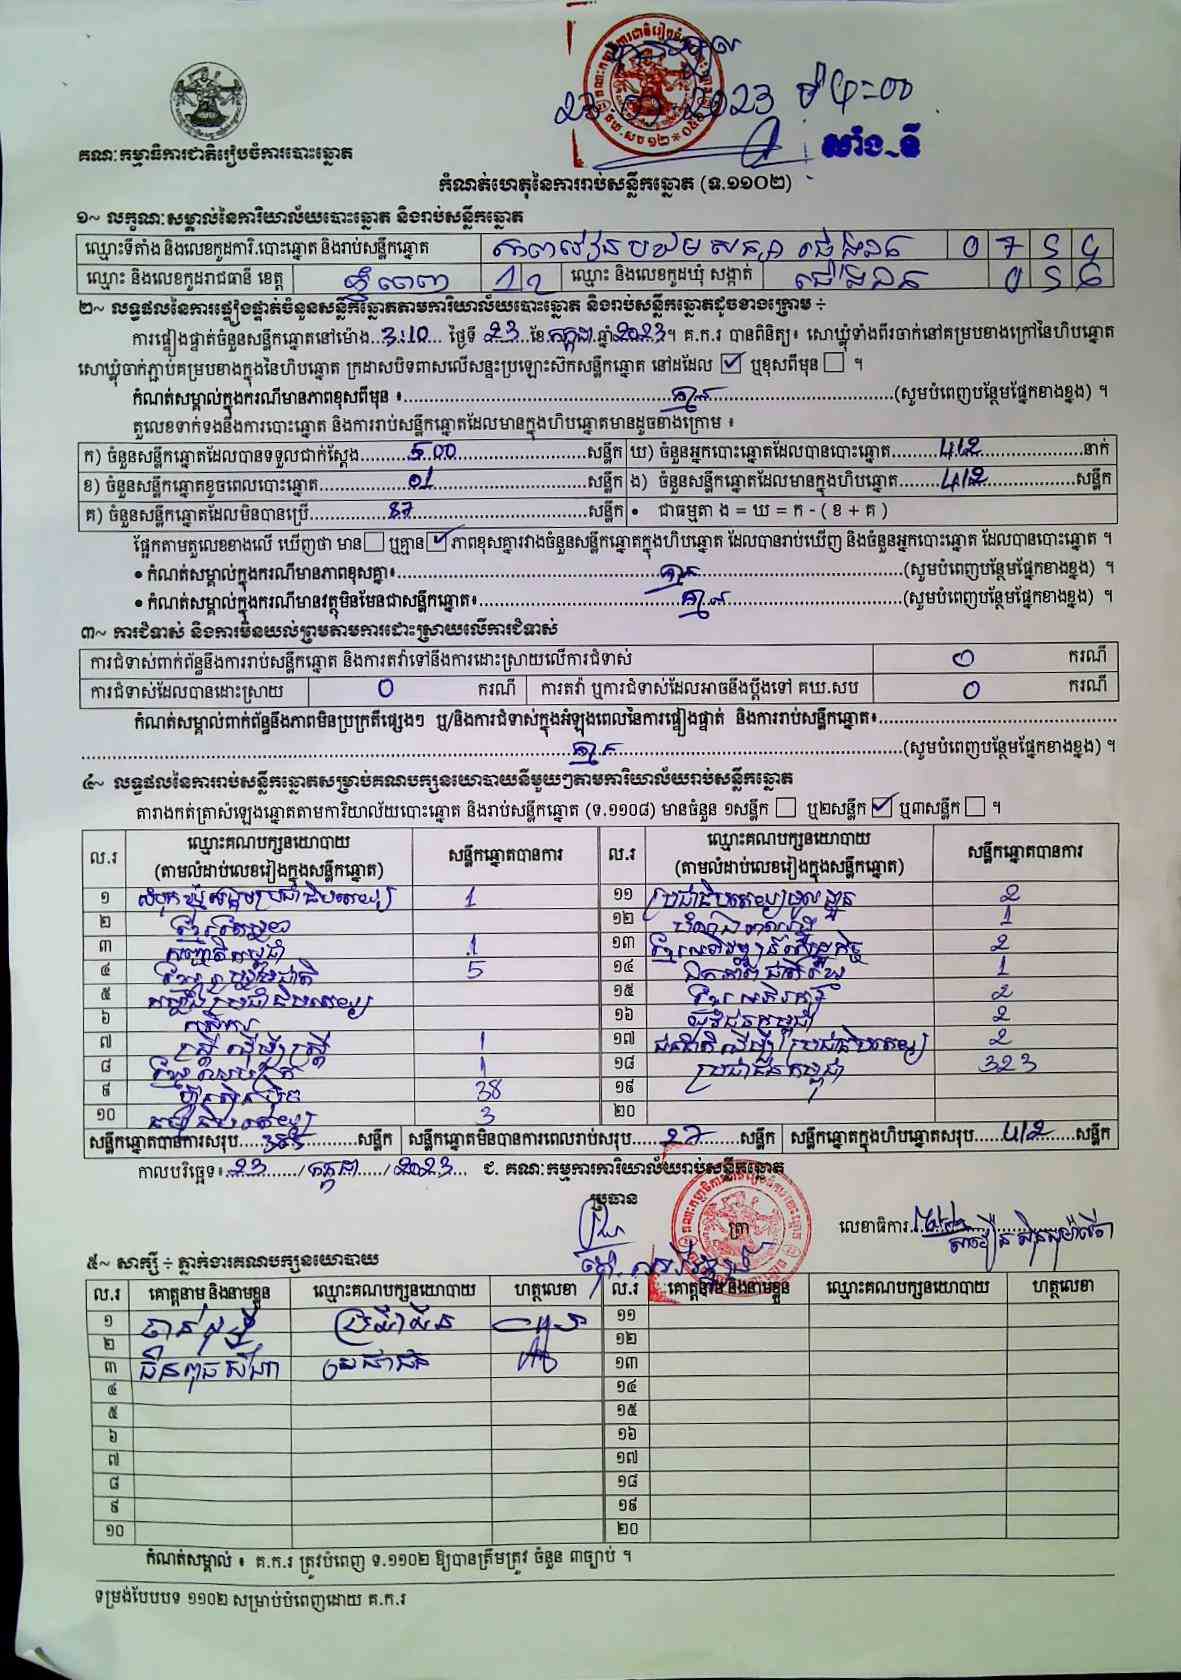 គណៈកម្មាធិការជាតិរៀបចំការបោះឆ្នោត
23 2023
សាំង-ឌី
កំណត់ហេតុនៃការរាប់សន្លឹកឆ្នោត (ទ.១១០២)
១~ លក្ខណៈសម្គាល់នៃការិយាល័យបោះឆ្នោត និងរាប់សន្លឹកឆ្នោត
ឈ្មោះទីតាំង និងលេខកូដការិ.បោះឆ្នោត និងរាប់សន្លឹកឆ្នោត 0 7 5 4
ឈ្មោះ និងលេខកូដរាជធានី ខេត្ត ភ្នំពេញ 1 2 ឈ្មោះ និងលេខកូដឃុំ សង្កាត់ 0 5 6
២~ លទ្ធផលនៃការផ្ទៀងផ្ទាត់ចំនួនសន្លឹកឆ្នោតតាមការិយាល័យបោះឆ្នោត និងរាប់សន្លឹកឆ្នោតដូចខាងក្រោម ÷
ការផ្ទៀងផ្ទាត់ចំនួនសន្លឹកឆ្នោតនៅម៉ោង 3:10 ថ្ងៃទី 23 ខែ កក្កដា ឆ្នាំ 2023។ គ.ក.រ បានពិនិត្យ៖ សោឃ្លុំទាំងពីរចាក់នៅគម្របខាងក្រៅនៃហិបឆ្នោត
សោឃ្លុំចាក់ភ្ជាប់គម្របខាងក្នុងនៃហិបឆ្នោត ក្រដាសបិទពាសលើសន្ទះប្រឡោះស៊កសន្លឹកឆ្នោត នៅដដែល ☑ ឬខុសពីមុន ☐ ។
កំណត់សម្គាល់ក្នុងករណីមានភាពខុសពីមុន ៖ គ្មាន (សូមបំពេញបន្ថែមផ្នែកខាងខ្នង) ។
តួលេខទាក់ទងនឹងការបោះឆ្នោត និងការរាប់សន្លឹកឆ្នោតដែលមានក្នុងហិបឆ្នោតមានដូចខាងក្រោម ៖
ក) ចំនួនសន្លឹកឆ្នោតដែលបានទទួលជាក់ស្តែង 500 សន្លឹក ឃ) ចំនួនអ្នកបោះឆ្នោតដែលបានបោះឆ្នោត 412 នាក់
ខ) ចំនួនសន្លឹកឆ្នោតខូចពេលបោះឆ្នោត 01 សន្លឹក ង) ចំនួនសន្លឹកឆ្នោតដែលមានក្នុងហិបឆ្នោត 412 សន្លឹក
គ) ចំនួនសន្លឹកឆ្នោតដែលមិនបានប្រើ 87 សន្លឹក • ជាធម្មតា ង = ឃ = ក - ( ខ + គ )
ផ្អែកតាមតួលេខខាងលើ ឃើញថា មាន ☐ ឬគ្មាន ☑ ភាពខុសគ្នារវាងចំនួនសន្លឹកឆ្នោតក្នុងហិបឆ្នោត ដែលបានរាប់ឃើញ និងចំនួនអ្នកបោះឆ្នោត ដែលបានបោះឆ្នោត ។
• កំណត់សម្គាល់ក្នុងករណីមានភាពខុសគ្នា៖ គ្មាន (សូមបំពេញបន្ថែមផ្នែកខាងខ្នង) ។
• កំណត់សម្គាល់ក្នុងករណីមានវត្ថុមិនមែនជាសន្លឹកឆ្នោត៖ គ្មាន (សូមបំពេញបន្ថែមផ្នែកខាងខ្នង) ។
៣~ ការជំទាស់ និងការមិនយល់ព្រមតាមការដោះស្រាយលើការជំទាស់
ការជំទាស់ពាក់ព័ន្ធនឹងការរាប់សន្លឹកឆ្នោត និងការតវ៉ាទៅនឹងការដោះស្រាយលើការជំទាស់ 0 ករណី
ការជំទាស់ដែលបានដោះស្រាយ 0 ករណី ការតវ៉ា ឬការជំទាស់ដែលអាចនឹងប្តឹងទៅ គឃ.សប 0 ករណី
កំណត់សម្គាល់ពាក់ព័ន្ធនឹងភាពមិនប្រក្រតីផ្សេងៗ ឬ/និងការជំទាស់ក្នុងអំឡុងពេលនៃការផ្ទៀងផ្ទាត់ និងការរាប់សន្លឹកឆ្នោត៖
គ្មាន (សូមបំពេញបន្ថែមផ្នែកខាងខ្នង) ។
៤~ លទ្ធផលនៃការរាប់សន្លឹកឆ្នោតសម្រាប់គណបក្សនយោបាយនីមួយៗតាមការិយាល័យរាប់សន្លឹកឆ្នោត
តារាងកត់ត្រាសំឡេងឆ្នោតតាមការិយាល័យបោះឆ្នោត និងរាប់សន្លឹកឆ្នោត (ទ.១១០៨) មានចំនួន ១សន្លឹក ☐ ឬ២សន្លឹក ☑ ឬ៣សន្លឹក ☐ ។
ល.រ ឈ្មោះគណបក្សនយោបាយ (តាមលំដាប់លេខរៀងក្នុងសន្លឹកឆ្នោត) សន្លឹកឆ្នោតបានការ ល.រ ឈ្មោះគណបក្សនយោបាយ (តាមលំដាប់លេខរៀងក្នុងសន្លឹកឆ្នោត) សន្លឹកឆ្នោតបានការ
១ សំបុកឃ្មុំសង្គមប្រជាធិបតេយ្យ 1 ១១ 2
២ ខ្មែរតែមួយ ១២ 1
៣ សញ្ជាតិកម្ពុជា 1 ១៣ 2
៤ ខ្មែររួបរួមជាតិ 5 ១៤ ឯកភាពជាតិខ្មែរ 1
៥ កម្លាំងប្រជាធិបតេយ្យ ១៥ ខ្មែរអភិរក្ស 2
៦ កសិករ ១៦ យុវជនកម្ពុជា 2
៧ ស្ត្រីដើម្បីស្ត្រី 1 ១៧ ជនជាតិដើមប្រជាធិបតេយ្យ 2
៨ 1 ១៨ ប្រជាជនកម្ពុជា 323
៩ ហ្វ៊ុនស៊ិនប៉ិច 38 ១៩
១០ ធម្មាធិបតេយ្យ 3 ២០
សន្លឹកឆ្នោតបានការសរុប 385 សន្លឹក សន្លឹកឆ្នោតមិនបានការពេលរាប់សរុប 27 សន្លឹក សន្លឹកឆ្នោតក្នុងហិបឆ្នោតសរុប 412 សន្លឹក
កាលបរិច្ឆេទ៖ 23 / កក្កដា / 2023 ជ. គណៈកម្មការការិយាល័យរាប់សន្លឹកឆ្នោត
ប្រធាន ត្រា លេខាធិការ
៥~ សាក្សី ÷ ភ្នាក់ងារគណបក្សនយោបាយ
ល.រ គោត្តនាម និងនាមខ្លួន ឈ្មោះគណបក្សនយោបាយ ហត្ថលេខា ល.រ គោត្តនាម និងនាមខ្លួន ឈ្មោះគណបក្សនយោបាយ ហត្ថលេខា
១ ១១
២ ១២
៣ ប្រជាជន ១៣
៤ ១៤
៥ ១៥
៦ ១៦
៧ ១៧
៨ ១៨
៩ ១៩
១០ ២០
កំណត់សម្គាល់ ៖ គ.ក.រ ត្រូវបំពេញ ទ.១១០២ ឱ្យបានត្រឹមត្រូវ ចំនួន ៣ច្បាប់ ។
ទម្រង់បែបបទ ១១០២ សម្រាប់បំពេញដោយ គ.ក.រ